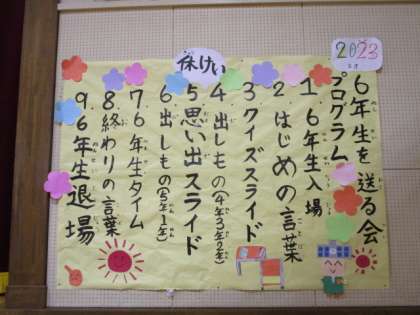 2023
６年生を送る会
プログラム
１ ６年生入場
２ はじめの言葉
３ クイズスライド
４ 出しもの(4年3年2年)
休けい
５ 思い出スライド
６ 出しもの(5年1年)
７ ６年生タイム
８ 終わりの言葉
９ ６年生退場